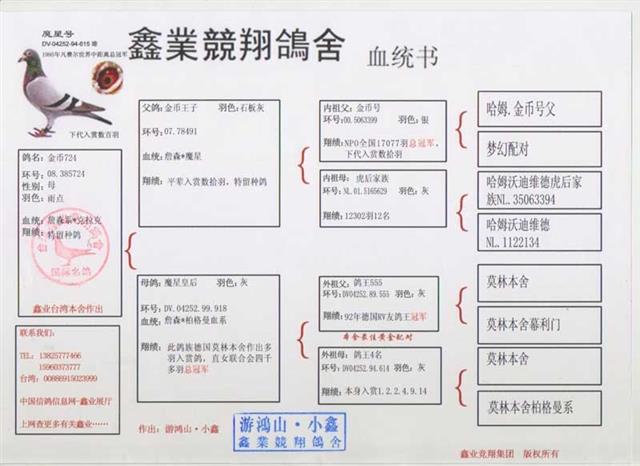 魔星号
DV-04252-94-615 雄
1995年凡赛尔世界中距离总冠军
鑫業競翔鴿舍
血统书
下代入赏数百羽
鸽名：金币724
环号：08.385724
性别：母
羽色：雨点
血统：詹森系*克拉克
翔绩：特留种鸽
国际名鸽
鑫业台湾本舍作出
联系我们：
TEL：13825777466
15960373777
台湾：00886915023999
中国信鸽信息网-鑫业展厅
上网查更多有关鑫业……
父鸽：金币王子 羽色：石板灰
环号：07.78491
血统：詹森*魔星
翔绩：平辈入赏数拾羽，特留种鸽
母鸽：魔星皇后 羽色：灰
环号：DV.04252.99.918
血统：詹森*柏格曼血系
翔绩：此鸽族德国莫林本舍作出多
羽入赏鸽，直女联合会四千
多羽总冠军
内祖父：金币号
环号：00.5063399 羽色：银
翔绩：NPO全国17077羽总冠军，
下代入赏数拾羽
内祖母：虎后家族
环号：NL.01.5165629 羽色：灰
翔绩：12302羽12名
外祖父：鸽王555
环号：DV04252.89.555 羽色：灰
翔绩：92年德国RV友鸽王冠军
本舍最佳黄金配对
外祖母：鸽王4名
环号：DV04252.94.614 羽色：灰
翔绩：本身入赏1.2.2.4.9.14
哈姆.金币号父
梦幻配对
哈姆沃迪维德虎后家
族NL.35063394
哈姆沃迪维德
NL.1122134
莫林本舍
莫林本舍幕利门
莫林本舍
莫林本舍柏格曼系
作出：游鸿山·小鑫
游鸿山·小鑫
鑫業競翔鴿舍
鑫业竞翔集团 版权所有